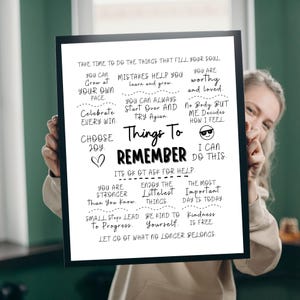 TAKE TIME TO DO THE THINGS THAT FILL YOUR SOUL.
YOU CAN
Grow at
YOUR OWN
PACE
MISTAKES HELP YOU
learn and grow.
YOU ARE
worthy
and loved.
Celebrate
EVERY WIN
YOU CAN ALWAYS
Start Over AND
TRY Again
No Body BUT
ME Decides
How I FEEL
CHOOSE
JOY
Things To
REMEMBER
I CAN
DO THIS
ITS OK OT ASK FOR HELP.
YOU ARE
STRONGER
Than You Know
ENJOY THE
Littelest
THINGS
THE MOST
Important
DAY IS TODAY
SMALL Steps LEAD
To Progress.
BE KIND TO
Yourself.
Kindness
IS FREE
LET GO OF WHAT NO LONGER BELONGS